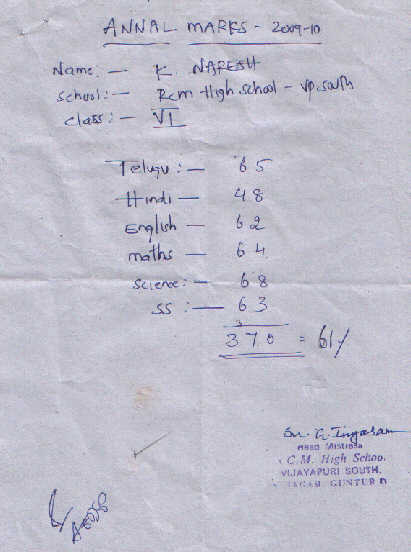 ANNAL MARKS - 2009-10
Name: - K NARESH
School: - Rcm High school - vp.south
class: - VI
Telugu: - 65
Hindi - 48
English - 62
maths - 64
Science: - 68
SS: - 63
370 = 61/
Head Mistress
C.M. High Schoo.
VIJAYAPURI SOUTH.
GUNTUR D